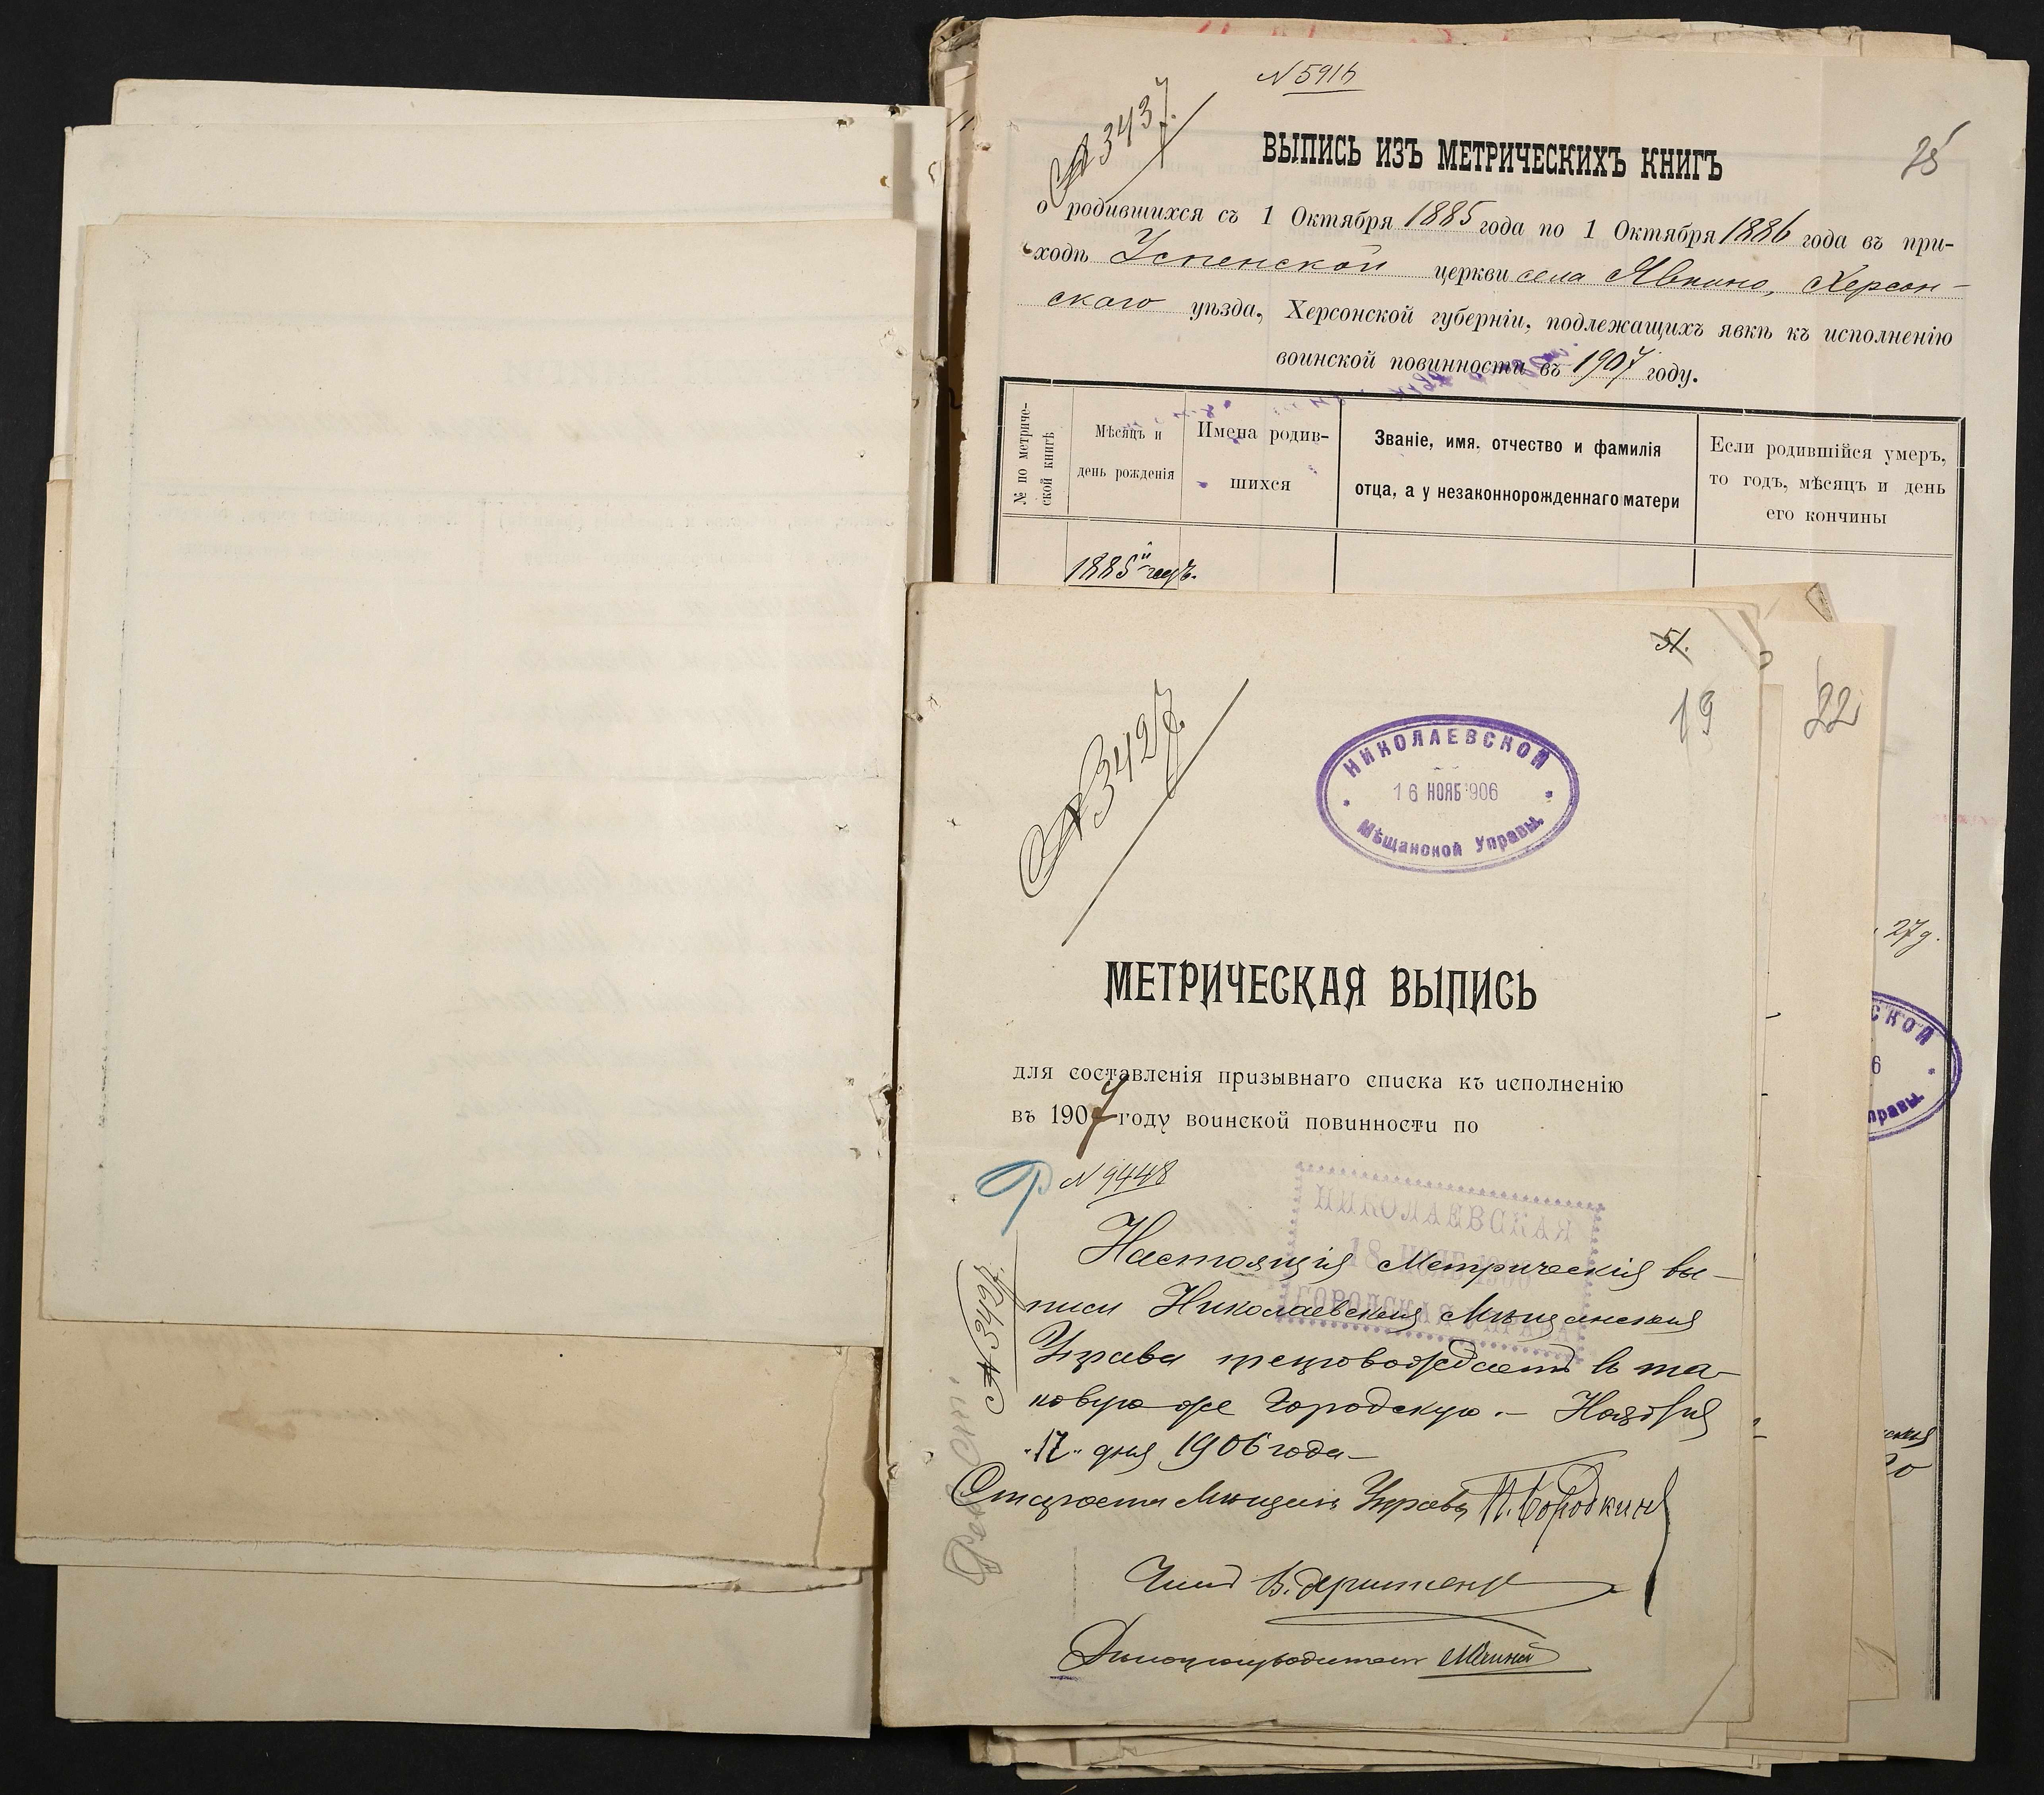 N 5916
№ 3437.
25
ВЫПИСЬ ИЗЪ МЕТРИЧЕСКИХЪ КНИГЪ
о родившихся съ 1 Октября 1885 года по 1 Октября 1886 года въ при-
ходѣ Успенской церкви села Явкино, Херсон-
скаго уѣзда, Херсонской губерніи, подлежащихъ явкѣ къ исполненію
воинской повинности въ 1907 году.
№ по метриче-
ской книгѣ
Мѣсяцъ и
день рожденія
Имена родив-
шихся
Званіе, имя, отчество и фамилія
отца, а у незаконнорожденнаго матери
Если родившійся умеръ,
то годъ, мѣсяцъ и день
его кончины
1885й годъ.
51.
19
22
№ 3427.
НИКОЛАЕВСКОЙ
16 НОЯБ 906
Мѣщанской Управы.
27 д.
СКОЙ
6
правы.
МЕТРИЧЕСКАЯ ВЫПИСЬ
для составленія призывнаго списка къ исполненію
въ 1907 году воинской повинности по
N 9448
НИКОЛАЕВСКАЯ
18 НОЯБ 1906
ГОРОДСКАЯ УПРАВА
Настоящія Метрическія вы-
писи Николаевская Мѣщанская
Управа препровождаетъ въ та-
ковую же Городскую. – Ноября
"17" дня 1906 года –
№ 3427.
Староста Мѣщан. Управы П. Бородкинъ
Членъ В.
Дѣлопроизводитель